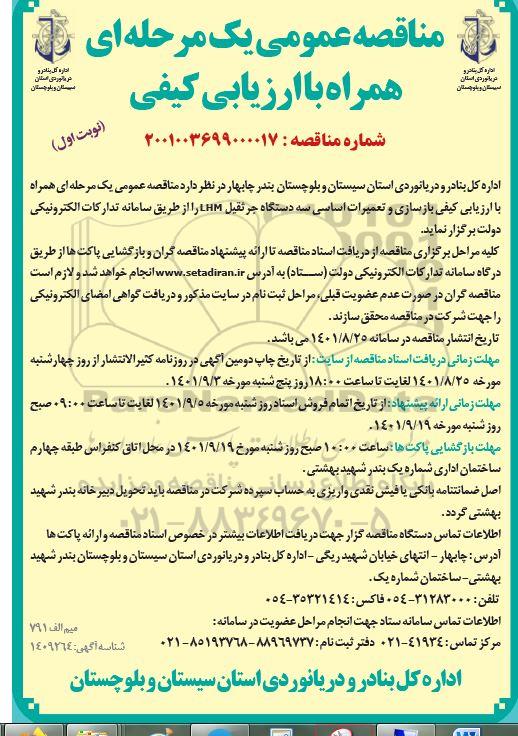 مناقصه عمومی یک مرحله ای
همراه با ارزیابی کیفی
اداره کل بنادر و
دریانوردی استان
سیستان و بلوچستان
اداره کل بنادر و
دریانوردی استان
سیستان و بلوچستان
(نوبت اول)
شماره مناقصه : ۲۰۰۱۰۰۳۶۹۹۰۰۰۰۱۷
اداره کل بنادر و دریانوردی استان سیستان و بلوچستان بندر چابهار در نظر دارد مناقصه عمومی یک مرحله ای همراه
با ارزیابی کیفی بازسازی و تعمیرات اساسی سه دستگاه جرثقیل LHM را از طریق سامانه تدارکات الکترونیکی
دولت برگزار نماید.
کلیه مراحل برگزاری مناقصه از دریافت اسناد مناقصه تا ارائه پیشنهاد مناقصه گران و بازگشایی پاکت ها از طریق
درگاه سامانه تدارکات الکترونیکی دولت (ستاد) به آدرس www.setadiran.ir انجام خواهد شد و لازم است
مناقصه گران در صورت عدم عضویت قبلی، مراحل ثبت نام در سایت مذکور و دریافت گواهی امضای الکترونیکی
را جهت شرکت در مناقصه محقق سازند.
تاریخ انتشار مناقصه در سامانه ۱۴۰۱/۸/۲۵ می باشد.
مهلت زمانی دریافت اسناد مناقصه از سایت : از تاریخ چاپ دومین آگهی در روزنامه کثیرالانتشار از روز چهارشنبه
مورخه ۱۴۰۱/۸/۲۵ لغایت تا ساعت ۱۸:۰۰ روز پنج شنبه مورخه ۱۴۰۱/۹/۳.
مهلت زمانی ارائه پیشنهاد : از تاریخ اتمام فروش اسناد روز شنبه مورخه ۱۴۰۱/۹/۵ لغایت تا ساعت ۰۹:۰۰ صبح
روز شنبه مورخه ۱۴۰۱/۹/۱۹.
مهلت بازگشایی پاکت ها : ساعت ۱۰:۰۰ صبح روز شنبه مورخ ۱۴۰۱/۹/۱۹ در محل اتاق کنفراس طبقه چهارم
ساختمان اداری شماره یک بندر شهید بهشتی.
اصل ضمانتنامه بانکی یا فیش نقدی واریزی به حساب سپرده شرکت در مناقصه باید تحویل دبیرخانه بندر شهید
بهشتی گردد.
اطلاعات تماس دستگاه مناقصه گزار جهت دریافت اطلاعات بیشتر در خصوص اسناد مناقصه و ارائه پاکت ها
آدرس : چابهار - انتهای خیابان شهید ریگی - اداره کل بنادر و دریانوردی استان سیستان و بلوچستان بندر شهید
بهشتی- ساختمان شماره یک.
تلفن : ۳۱۲۸۳۰۰۰-۰۵۴ فاکس : ۳۵۳۲۱۴۱۴-۰۵۴
اطلاعات تماس سامانه ستاد جهت انجام مراحل عضویت در سامانه :
مرکز تماس : ۴۱۹۳۴-۰۲۱ دفتر ثبت نام : ۸۸۹۶۹۷۳۷-۸۵۱۹۳۷۶۸-۰۲۱
میم الف ۷۹۱
شناسه آگهی: ۱۴۰۹۲۶۴
اداره کل بنادر و دریانوردی استان سیستان و بلوچستان
پایگاه اطلاع رسانی مناقصه و مزایده
۰۲۱-۸۸۳۴۹۶۷۰-۵